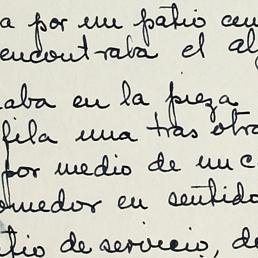 a por un patio cen
encontraba el al
aba en la pieza
fila una tras otra
por medio de un c
omedor en sentido
tio de servicio, de